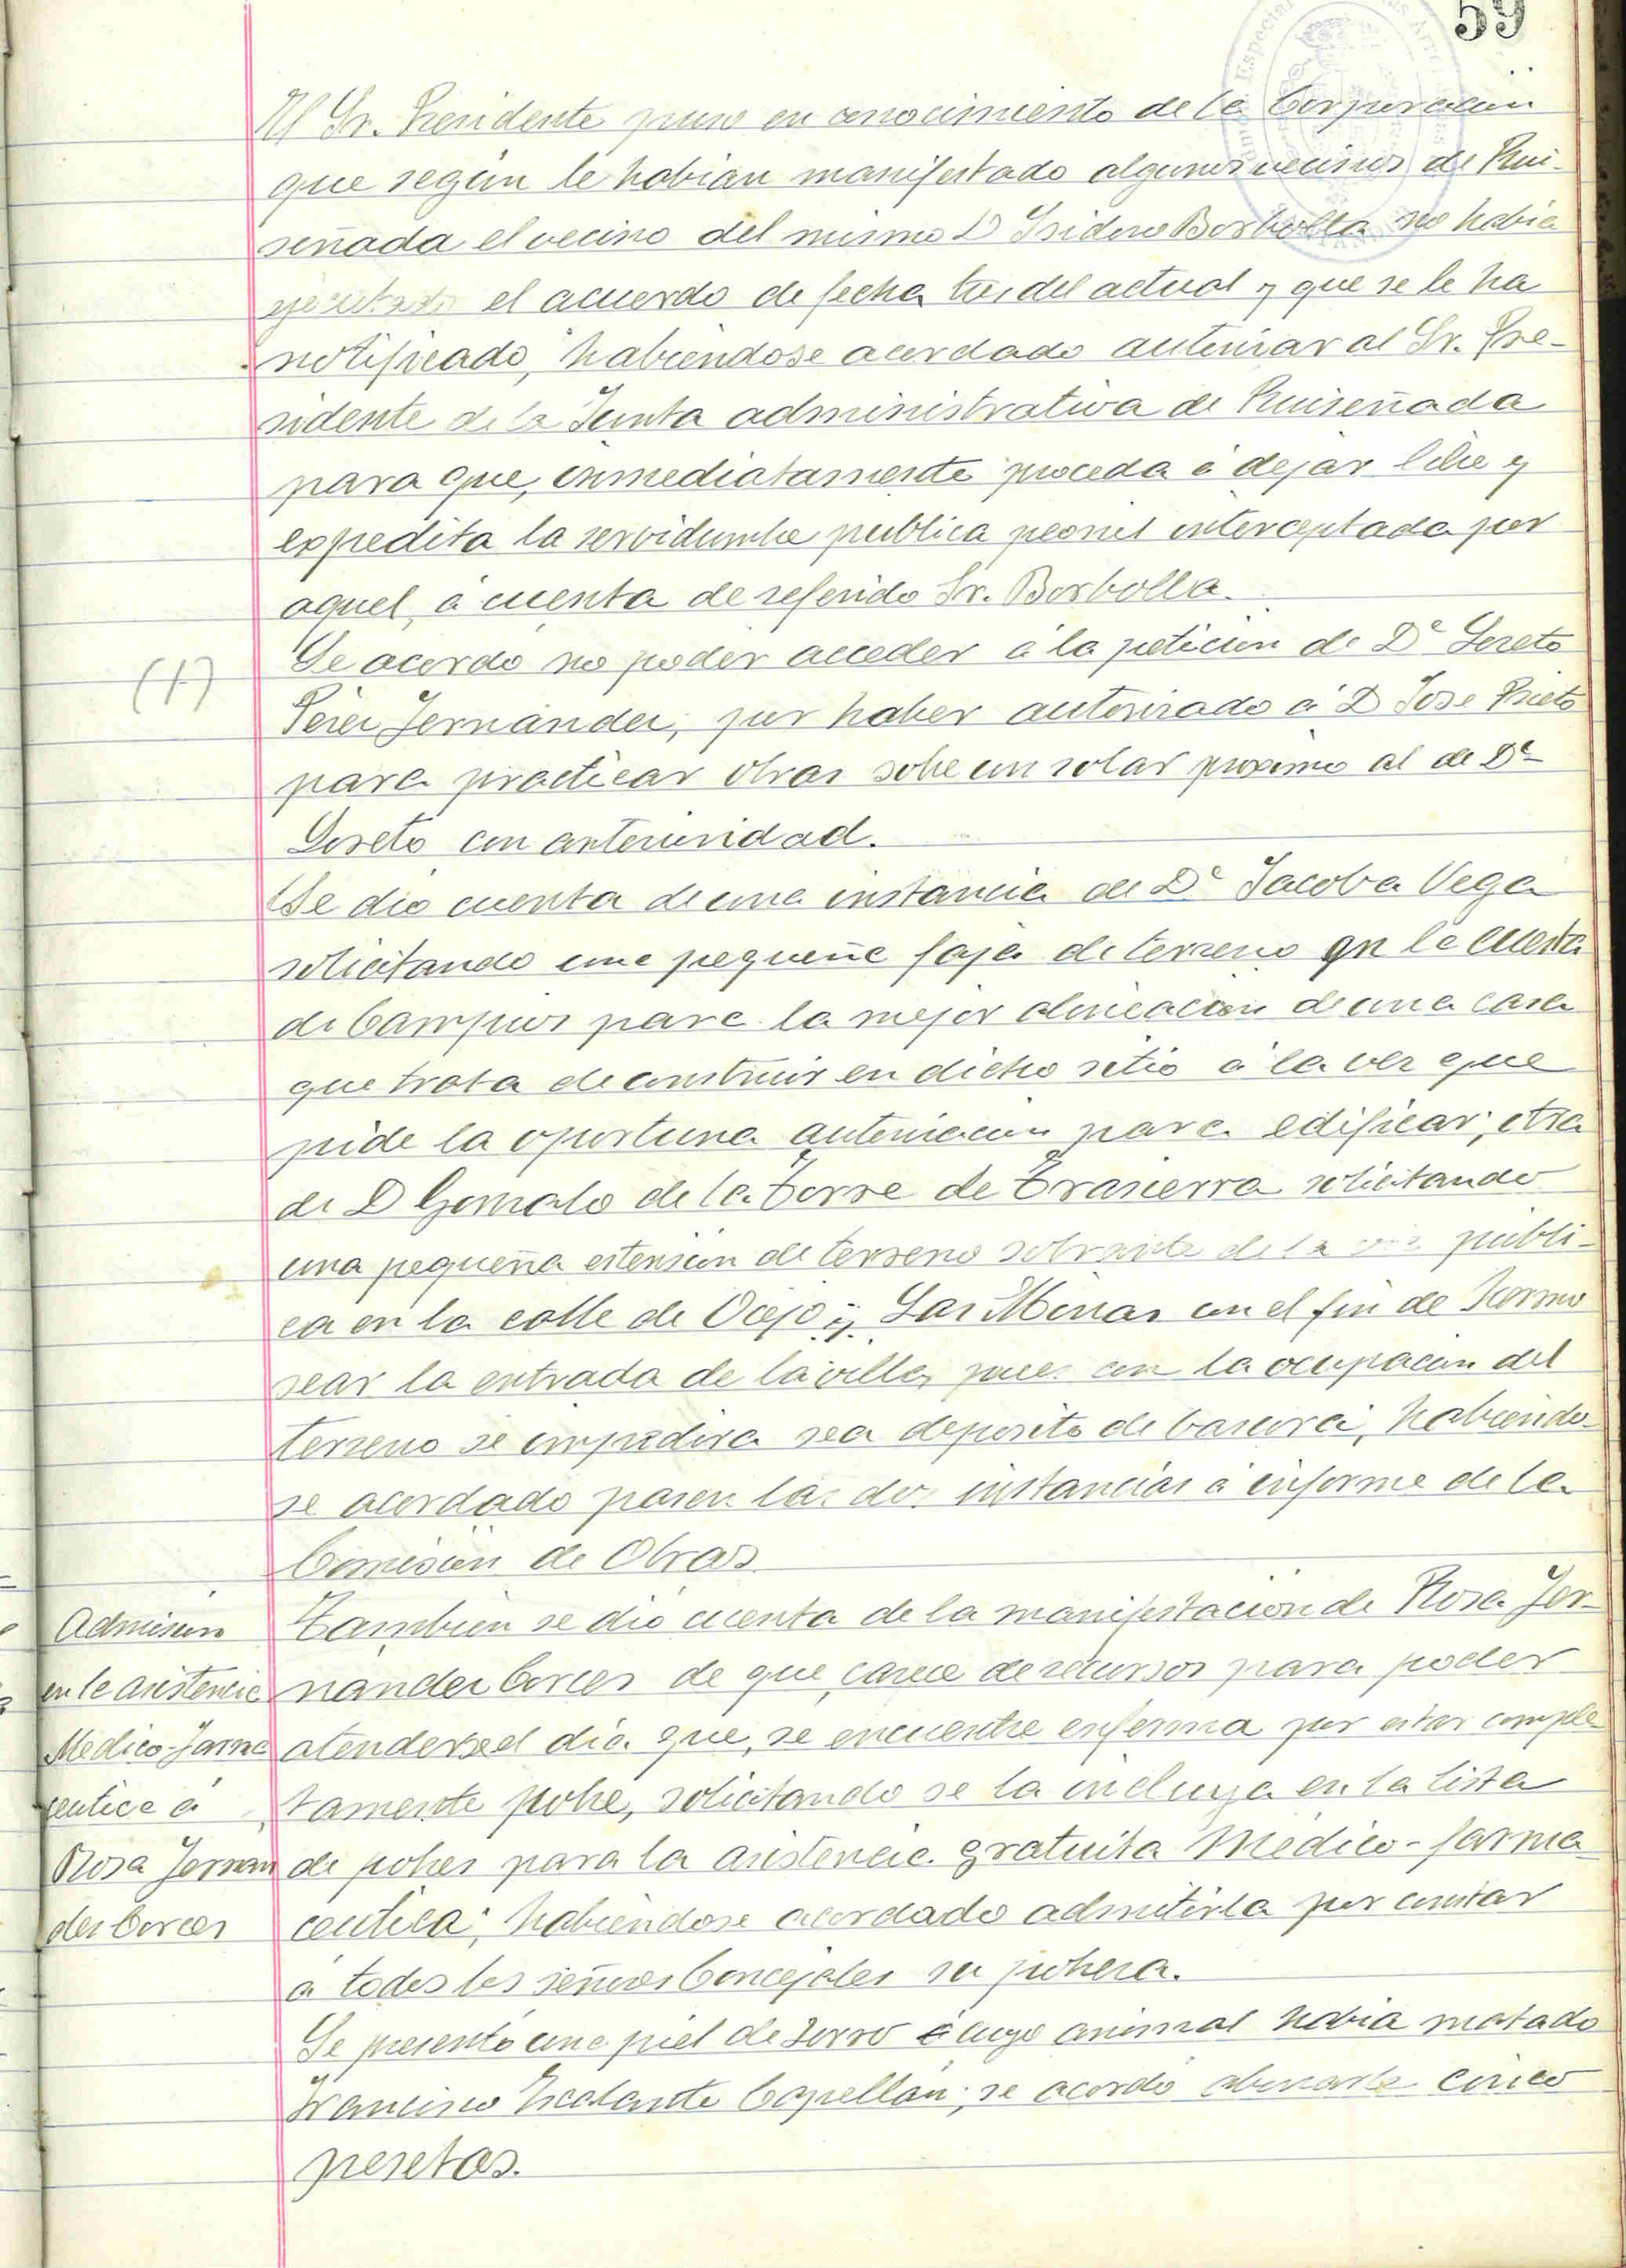 59
El Sr. Presidente puso en conocimiento de la Corporacion
que según le habian manifestado algunos vecinos de Rui-
señada el vecino del mismo D Isidoro Borbolla no habia
ejecutado el acuerdo de fecha tres del actual y que se le ha
notificado, habiendose acordado autorizar al Sr. Pre-
sidente de la Junta administrativa de Ruiseñada
para que, inmediatamente proceda á dejar libre y
expedita la servidumbre publica peonil interceptada por
aquel, á cuenta de referido Sr. Borbolla.
(1)
Se acordó no poder acceder á la peticion de Dª Loreto
Perez Fernández, por haber autorizado á D Jose Prieto
para practicar obras sobre un solar proximo al de Dª
Loreto con anterioridad.
Se dió cuenta de una instancia de Dª Jacoba Vega
solicitando una pequeña faja de terreno en la cuesta
de Campios para la mejor alineacion de una casa
que trata de construir en dicho sitio á la vez que
pide la oportuna autorizacion para edificar; otra
de D Gonzalo de la Torre de Trasierra solicitando
una pequeña estension de terreno sobrante de la via públi-
ca en la calle de Ocejo y Las Minas con el fin de hermo
sear la entrada de la villa, pues con la ocupacion del
terreno se impedira sea deposito de basura, habiendo-
se acordado pasen las dos instancias á informe de la
Comision de Obras.
Admision
en la asistencia
Medico-farma
ceutica á
Rosa Fernan
dez Corces
Tambien se dió cuenta de la manifestacion de Rosa Fer-
nandez Corces de que carece de recursos para poder
atenderse el dia que, se encuentre enferma por estar comple
tamente pobre, solicitando se la incluya en la lista
de pobres para la asistencia gratuita Medico-farma-
ceutica; habiendose acordado admitirla por constar
á todos los señores Concejales su pobreza.
Se presentó una piel de zorro cuyo animal habia matado
Francisco Escalante Capellán; se acordó abonarle cinco
pesetas.